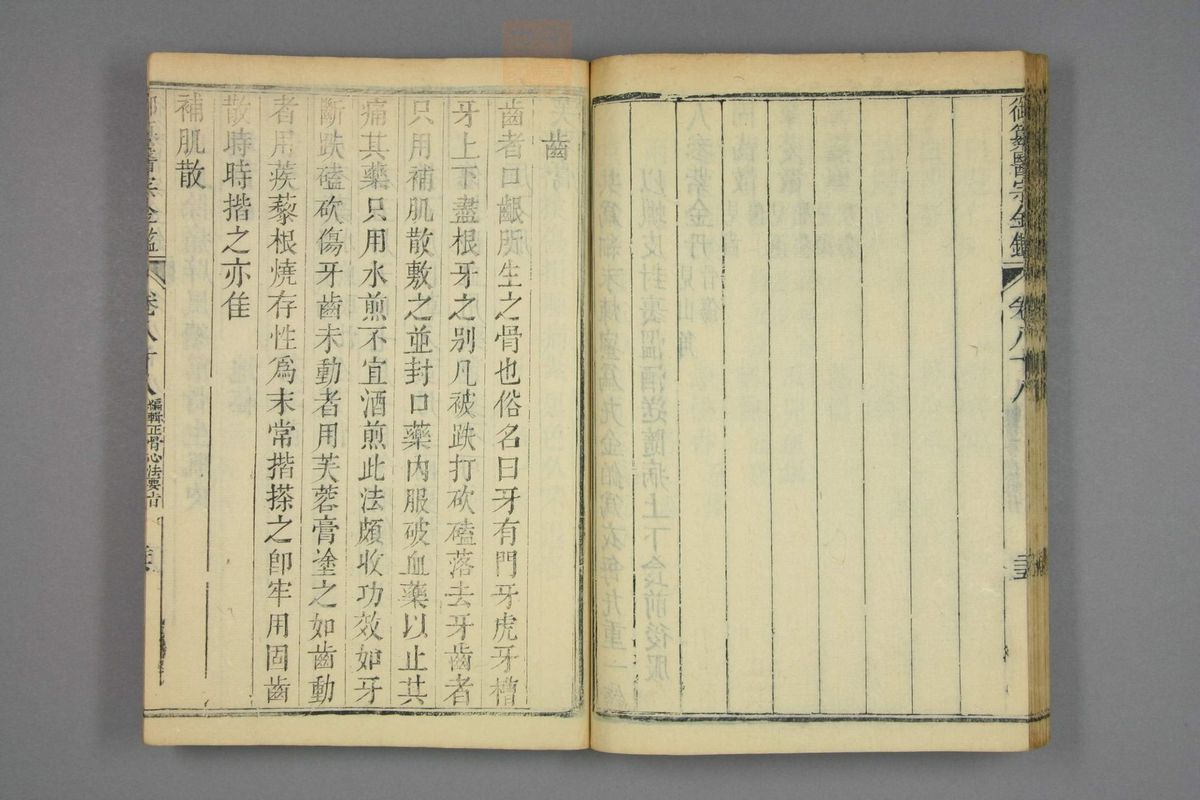 御纂醫宗金鑑 卷八十八
齒
齒者口齦所生之骨也俗名曰牙有門牙虎牙槽
牙上下盡根牙之别凡被跌打砍磕落去牙齒者
只用補肌散敷之並封口藥內服破血藥以止其
痛其藥只用水煎不宜酒煎此法頗收功效如牙
斷跌磕砍傷牙齒未動者用芙蓉膏塗之如齒動
者用蒺藜根燒存性爲末常揩搽之卽牢用固齒
散時時揩之亦佳
補肌散
醫宗金鑑 卷八十八 編輯正骨心法要旨